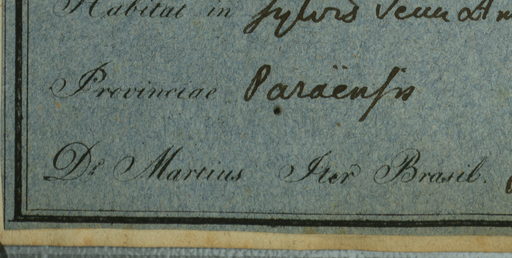 Habitat in sylvis
Provinciae Paraënsis
Dr. Martius Iter Brasil.